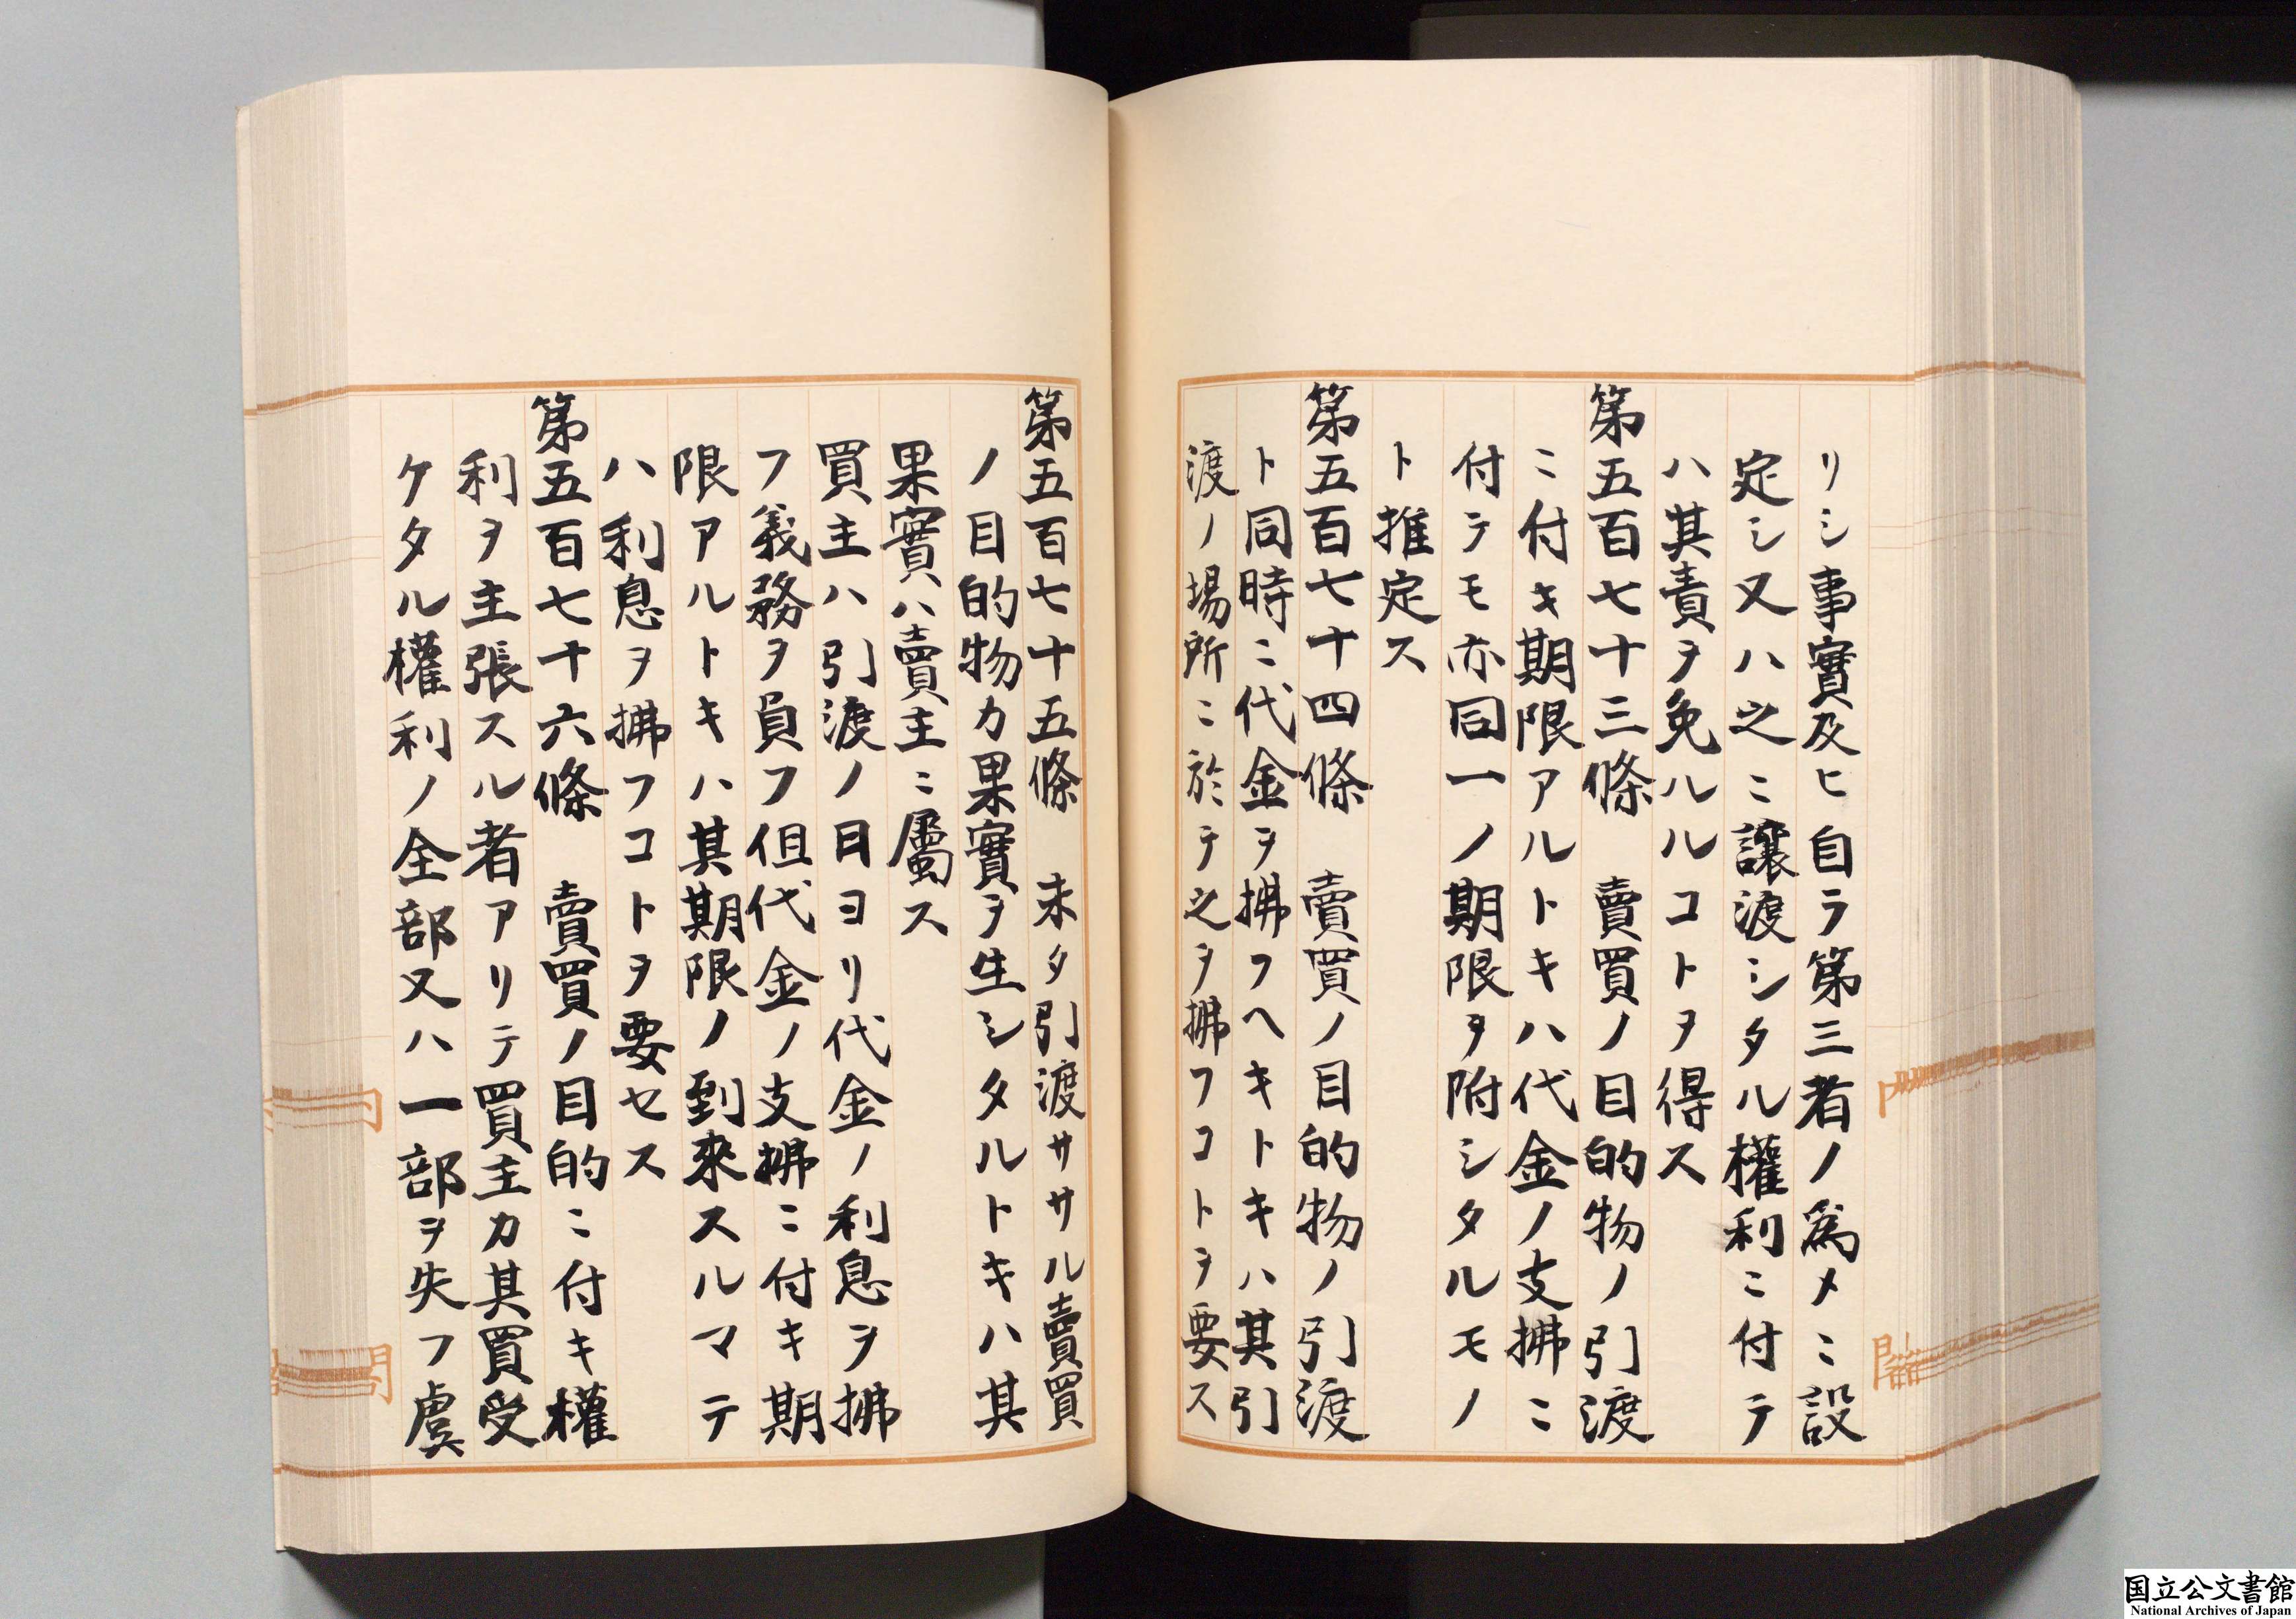 リシ事實及ヒ自ラ第三者ノ爲メニ設
定シ又ハ之ニ讓渡シタル權利ニ付テ
ハ其責ヲ免ルルコトヲ得ス
第五百七十三條　賣買ノ目的物ノ引渡
ニ付キ期限アルトキハ代金ノ支拂ニ
付テモ亦同一ノ期限ヲ附シタルモノ
ト推定ス
第五百七十四條　賣買ノ目的物ノ引渡
ト同時ニ代金ヲ拂フヘキトキハ其引
渡ノ場所ニ於テ之ヲ拂フコトヲ要ス
第五百七十五條　未タ引渡ササル賣買
ノ目的物カ果實ヲ生シタルトキハ其
果實ハ賣主ニ屬ス
買主ハ引渡ノ日ヨリ代金ノ利息ヲ拂
フ義務ヲ負フ但代金ノ支拂ニ付キ期
限アルトキハ其期限ノ到來スルマテ
ハ利息ヲ拂フコトヲ要セス
第五百七十六條　賣買ノ目的ニ付キ權
利ヲ主張スル者アリテ買主カ其買受
ケタル權利ノ全部又ハ一部ヲ失フ虞
国立公文書館
National Archives of Japan